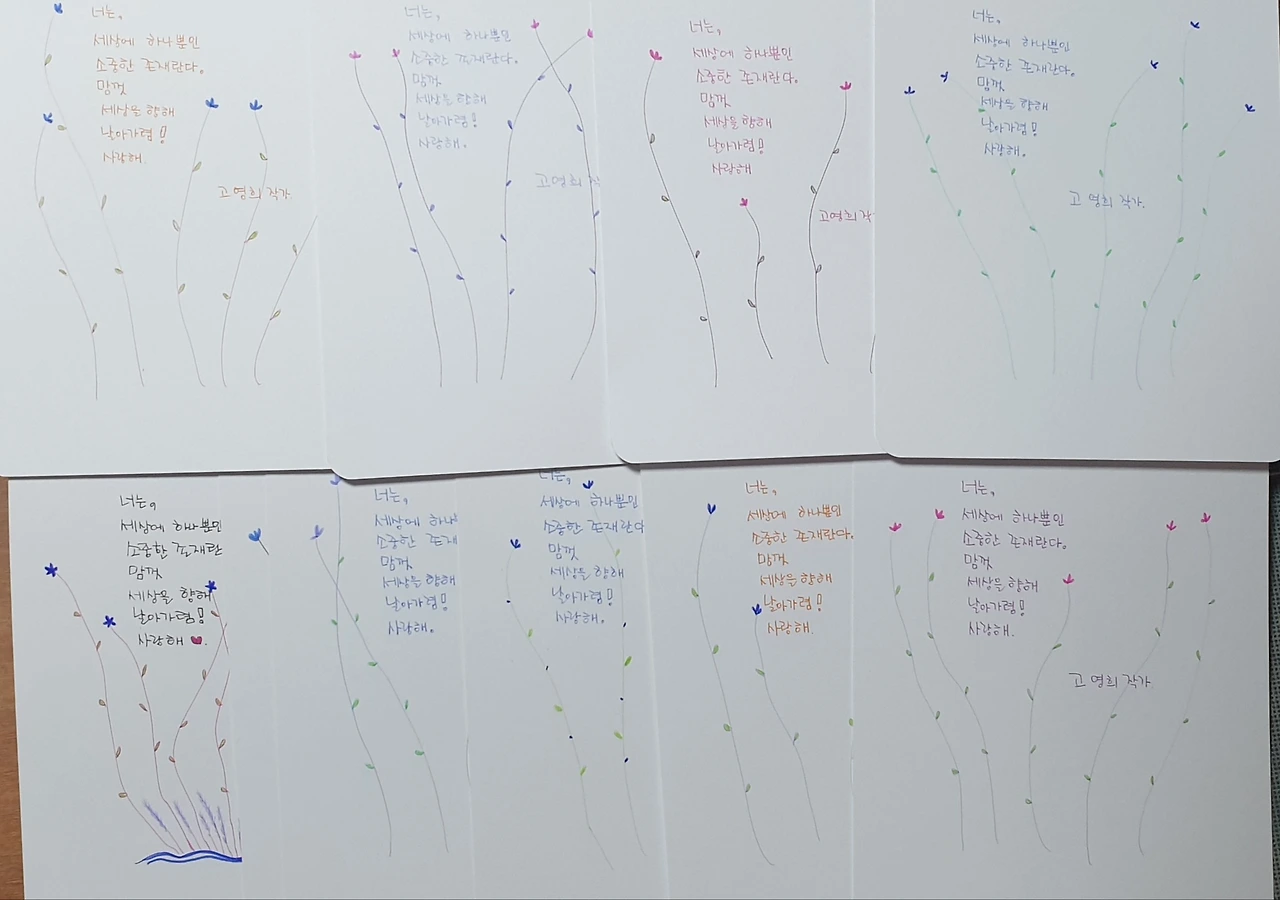 너는,
세상에 하나뿐인
소중한 존재란다.
맘껏
세상을 향해
날아가렴!
사랑해.
고영희 작가
너는,
세상에 하나뿐인
소중한 존재란다.
맘껏
세상을 향해
날아가렴!
사랑해.
고영희 작
너는,
세상에 하나뿐인
소중한 존재란다.
맘껏
세상을 향해
날아가렴!
사랍해
고영희 작
너는,
세상에 하나뿐인
소중한 존재란다.
맘껏
세상을 향해
날아가렴!
사랑해.
고영희 작가.
너는,
세상에 하나뿐인
소중한 존재란
맘껏
세상을 향해
날아가렴!
사랑해 ♥.
너는,
세상에 하나
소중한 존재
맘껏
세상을 향해
날아가렴!
사랑해.
너는,
세상에 하나뿐인
소중한 존재란다
맘껏
세상을 향해
날아가렴!
사랑해.
너는,
세상에 하나뿐인
소중한 존재란다.
맘껏
세상을 향해
날아가렴!
사랑해.
너는,
세상에 하나뿐인
소중한 존재란다.
맘껏
세상을 향해
날아가렴!
사랑해.
고영희 작가